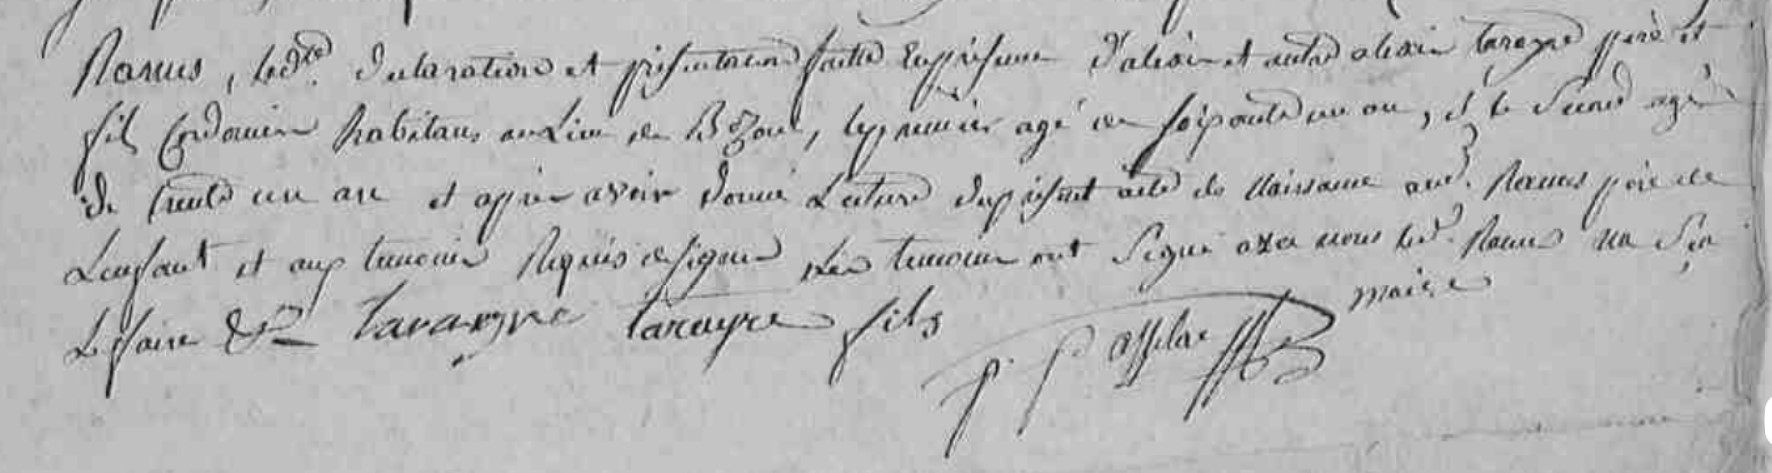 Ramus, led.te declaration et présentation faitte en présence d'alexis et autre alexis tarayre père et
fils Cordonier habitans au Lieu de Bozoul, le premier agé de soixante un an, et le Second agé
de trente un an et après avoir donné Lecture du présent acte de Naissance aud. Ramus père de
L'enfant et aux temoins Requis de signer, Les temoins ont Signé avec nous led. Ramus na Sçu
Le faire &
tarayre tarayre fils
maire